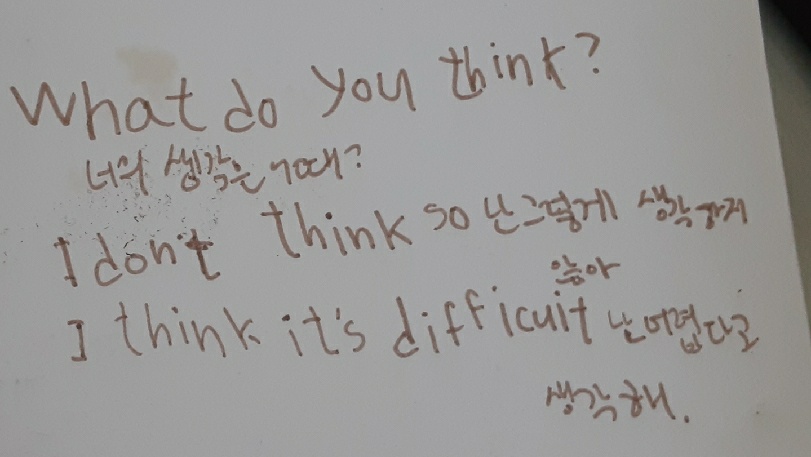 What do you think?
너의 생각은 어때?
I don't think so 난 그렇게 생각하지
않아
I think it's difficuit 난 어렵다고
생각해.